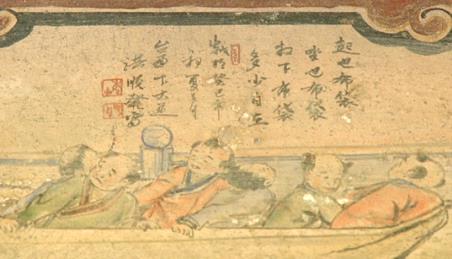 起也布袋
坐也布袋
放下布袋
多少自在
歲 癸巳年
初夏
台南下大道
洪順發寫